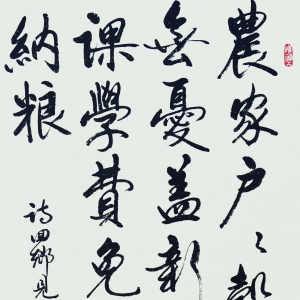 農家户々都
無憂蓋新
課學費免
納粮
詩田鄉見